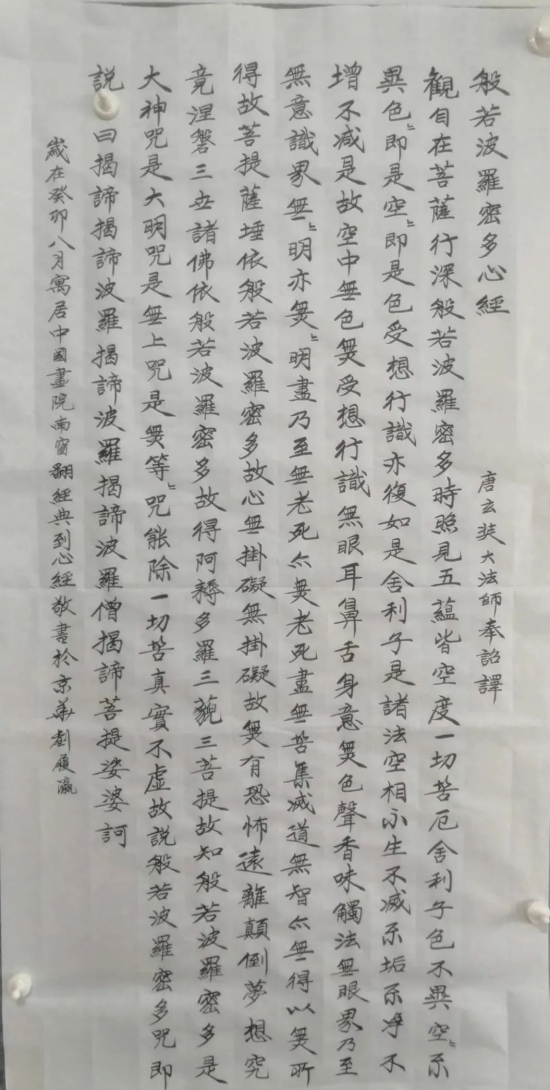 般若波羅密多心經
唐玄奘大法師奉詔譯
觀自在菩薩行深般若波羅密多時照見五蘊皆空度一切苦厄舍利子色不異空〻不
異色〻即是空〻即是色受想行識亦復如是舍利子是諸法空相不生不滅不垢不净不
增不减是故空中無色無受想行識無眼耳鼻舌身意無色聲香味觸法無眼界乃至
無意識界無〻明亦無〻明盡乃至無老死亦無老死盡無苦集滅道無智亦無得以無所
得故菩提薩埵依般若波羅密多故心無掛礙無掛礙故無有恐怖遠離顛倒夢想究
竟涅磐三世諸佛依般若波羅密多故得阿耨多羅三藐三菩提故知般若波羅密多是
大神咒是大明咒是無上咒是無等〻咒能除一切苦真實不虛故説般若波羅密多咒即
説曰揭諦揭諦波羅揭諦波羅揭諦波羅僧揭諦菩提娑婆訶
歲在癸卯八月寓居中國畫院南窗翻經典到心經敬書於京華劉履瀛